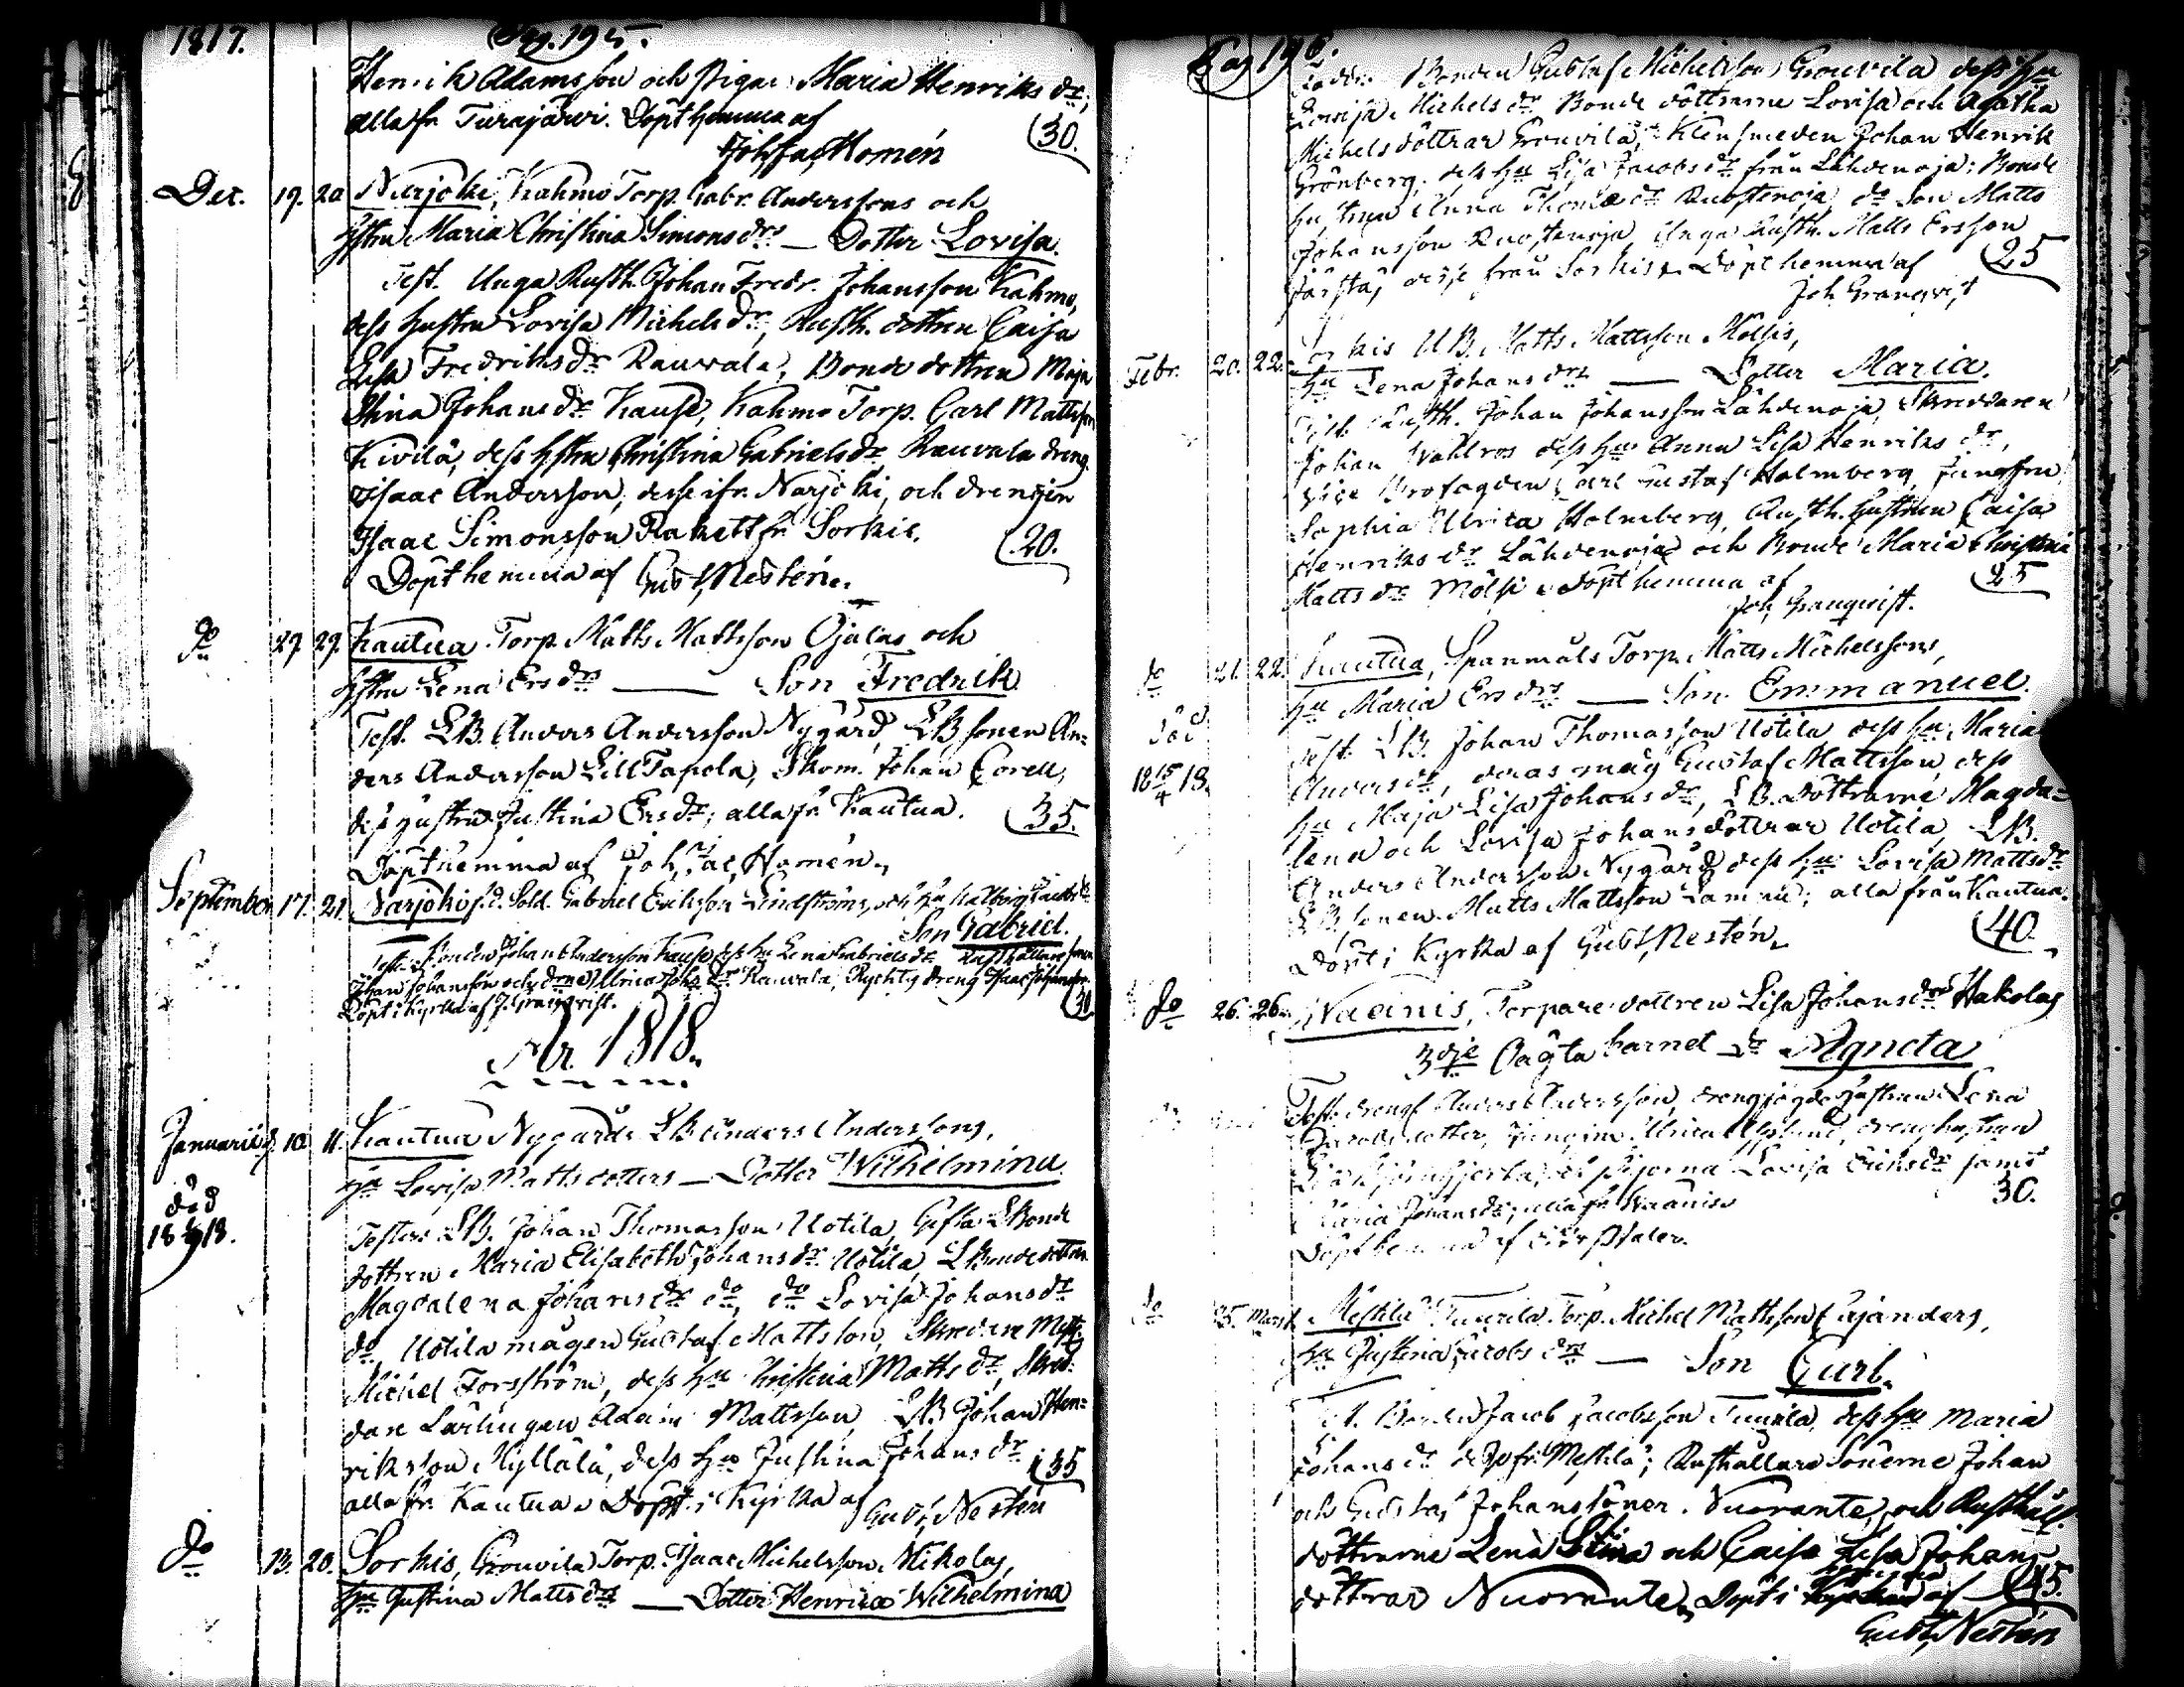 1817.
Pag. 195.
Henrik Adamsson och Pigan Maria Henriks dr,
alla fr. Turajärvi. Döpt hemma af
Joh, Jac, Homén
(30.
Dec. 19. 20 Narjoki, Kahmo Torp. Gabr. Anderssons och
hstru Maria Christina Simons drs — Dotter Lovisa.
Test. Unga Rusth. Johan Fredr. Johansson Kahmo,
dess hustru Lovisa Michels dr, Rusth. dottren Caisa
Lisa Fredriks dr Rauvala, Bonde dottren Maja
Stina Johans dr Kause, Kahmo Torp. Carl Mattsson
Kivilä, dess hstru Christina Gabriels dr Rauvala dreng.
Isaac Andersson, desse ifr. Narjoki, och drengen
Isaac Simonsson Rakett fr. Sorkis.
(20.
Döpt hemma af Gust, Nestén.
do 27. 29. Kautua Torp. Matts Mattsson Ojalas och
hstru Lena Ers drs — Son Fredrik
Test. LB. Anders Andersson Nygård, LB sonen An-
ders Andersson Lill Tapola, Skom. Johan Corell,
dess hustru Justina Ers dr; alla fr. Kautua.
(35.
Döpt hemma af Joh, Jac, Homén.
September 17. 21. Narjoki, Sold. Gabriel Eriksson Lindströms, och hu
Son Gabriel.
Test. Bonden Johan Andersson Kause, dess hu Lena Gabriels dr
Johan Johansson och Ulrica Johs dr Rauvala, dreng Isaac Johansson
Döpt i Kyrkan af J. Granqvist.
(30.
År 1818.
Januarii 10. 11. Kautua Nygårds LB Anders Anderssons,
hu Lovisa Matts dotters — Dotter Wilhelmina.
död
Testes. LB. Johan Thomasson Uotila, Gifta LBonde
dottren Maria Elisabeth Johans dr Uotila, LBonde dottren
Magdalena Johans dr do, do Lovisa Johans dr
do Uotila mågen Gustaf Mattsson, Skreddare Mest.
Michel Forsström, dess hu Christina Matts dr, Skred-
dare Lärlingen Adam Mattsson, LB. Johan Hen-
riksson Kyllälä, dess hu Justina Johans dr
(35
alla fr. Kautua. Döpt i Kyrkan af
Gust, Nestén
do 13. 20. Sorkis, Grouvila Torp. Isaac Michelsson Nikolas,
hu Justina Matts drs — Dotter Henrica Wilhelmina
Pag 196.
Bonden Gustaf Michelsson Grouvila dess hu
Lovisa Michels dr Bonde döttrarne Lovisa och Agatha
Michels döttrar Grouvila, Klensmeden Johan Henrik
Grönberg, dess hu Lisa Jacobs dr från Lähdenoja; Bonde
hustrun Anna Thomæ dr Ruostenoja, do Son Matts
Johansson Ruostenoja Unga Rusth. Matts Ersson
från Sorkis. Döpt hemma af
(25
Joh, Granqvist
Febr. 20. 22. Sorkis UB. Matts Mattsson Mölsis,
hu Lena Johans drs — Dotter Maria.
Test. Rusth. Johan Johansson Lähdenoja, Skreddaren
Johan Wahlros dess hu Anna Lisa Henriks dr,
Carl Gustaf Holmberg, Jungfru
Sophia Ulrica Holmberg, Rusth. hustrun Caisa
Henriks dr Lähdenoja och Bonde Maria Christina
Matts dr Mölsi. Döpt hemma af
(25
Joh, Granqvist.
do 21. 22. Kautua, Spanmåls Torp. Matts Michelssons,
hu Maria Ers drs — Son Emmanuel.
död
18 15/4 18.
Test. LB. Johan Thomasson Uotila, dess hu Maria
Anders dr, deras måg Gustaf Mattsson, dess
hu Maja Lisa Johans dr, LB. döttrarne Magda-
lena och Lovisa Johans döttrar Uotila, LB.
Anders Andersson Nygård, dess hu Lovisa Matts dr
LB sonen Matts Mattsson Lammi; alla från Kautua.
(40.
Döpt i Kyrka af Gust, Nestén
do 26. 26. Naanis, Torpare dottren Lisa Johans drs Hakolas
3dje Oägta barnet dr Agneta
Test. dreng Anders Andersson, hustrun Lena
Jacobs dotter, Ulrica
Lovisa Eriks dr samt
Maria Johans dr; alla fr. Naanis.
30.
Döpt hemma af
do 25. Mars 1. Mestilä Tuurila Torp. Michel Mattsson Cajanders,
hu Justina Jacobs drs — Son Carl.
Test. Bonden Jacob Jacobsson Tuurila, dess hu Maria
Johans dr desse fr. Mestilä; Rusthållare Sönerne Johan
och Gustaf Johanssöner Nuoranne, och Rusthåll.
döttrarne Lena Stina och Caisa Lisa Johans
döttrar Nuoranne, Döpt i af
(45.
Gust, Nestén